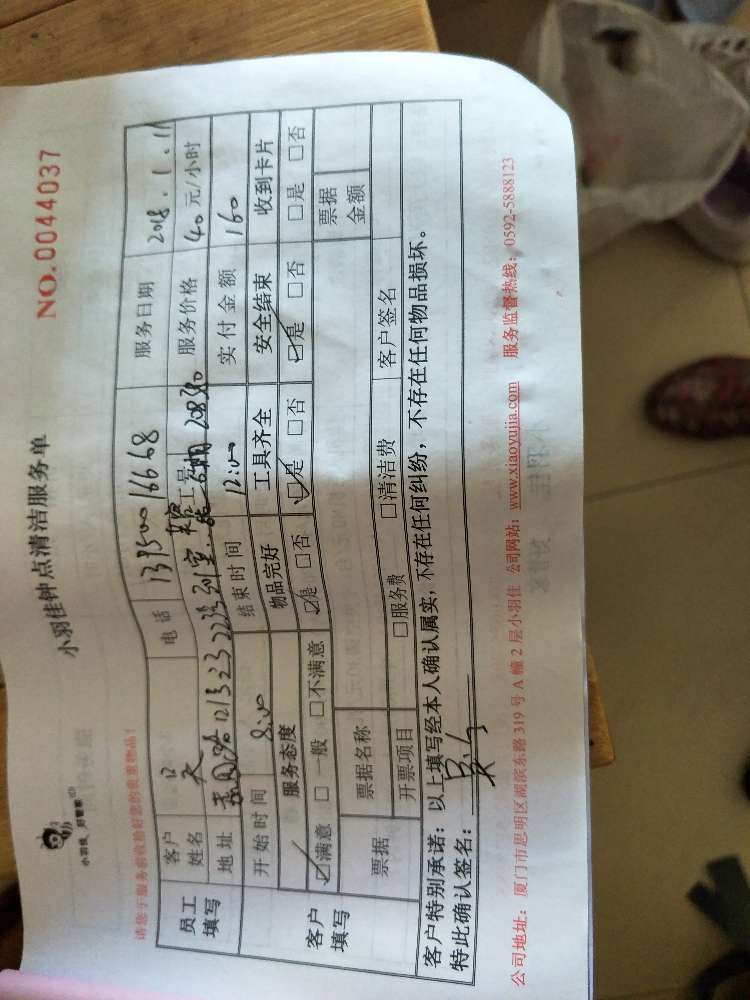 小羽佳钟点清洁服务单
NO.0044037
小羽佳，好管家
请您于服务前收拾好您的贵重物品！
员工填写
客户姓名 吴 电话 13950016668 服务日期 2018.1.11
地址 工号 服务价格 40元/小时
开始时间 8:00 结束时间 12:00 实付金额 160
客户填写
服务态度 物品完好 工具齐全 安全结束 收到卡片
☑满意 □一般 □不满意 ☑是 □否 ☑是 □否 ☑是 □否 □是 □否
票据 票据名称 票据金额
开票项目 □服务费 □清洁费 客户签名
客户特别承诺：以上填写经本人确认属实，不存在任何纠纷，不存在任何物品损坏。
特此确认签名：
公司地址：厦门市思明区湖滨东路319号A幢2层小羽佳 公司网站：www.xiaoyujia.com 服务监督热线：0592-5888123